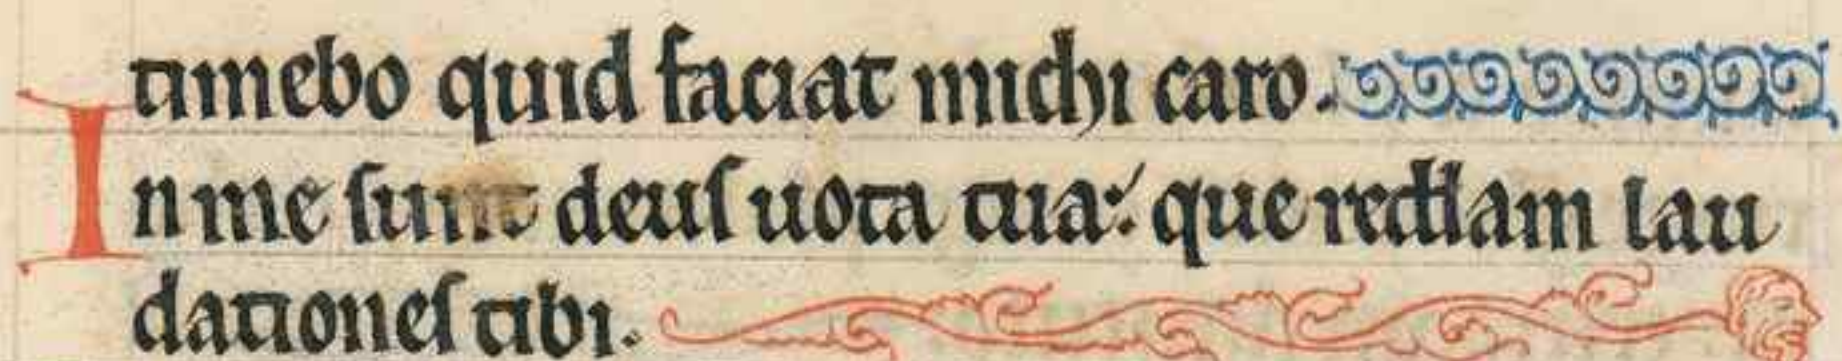 timebo quid faciat michi caro.
In me sunt deus uota tua: que reddam lau
dationes tibi.